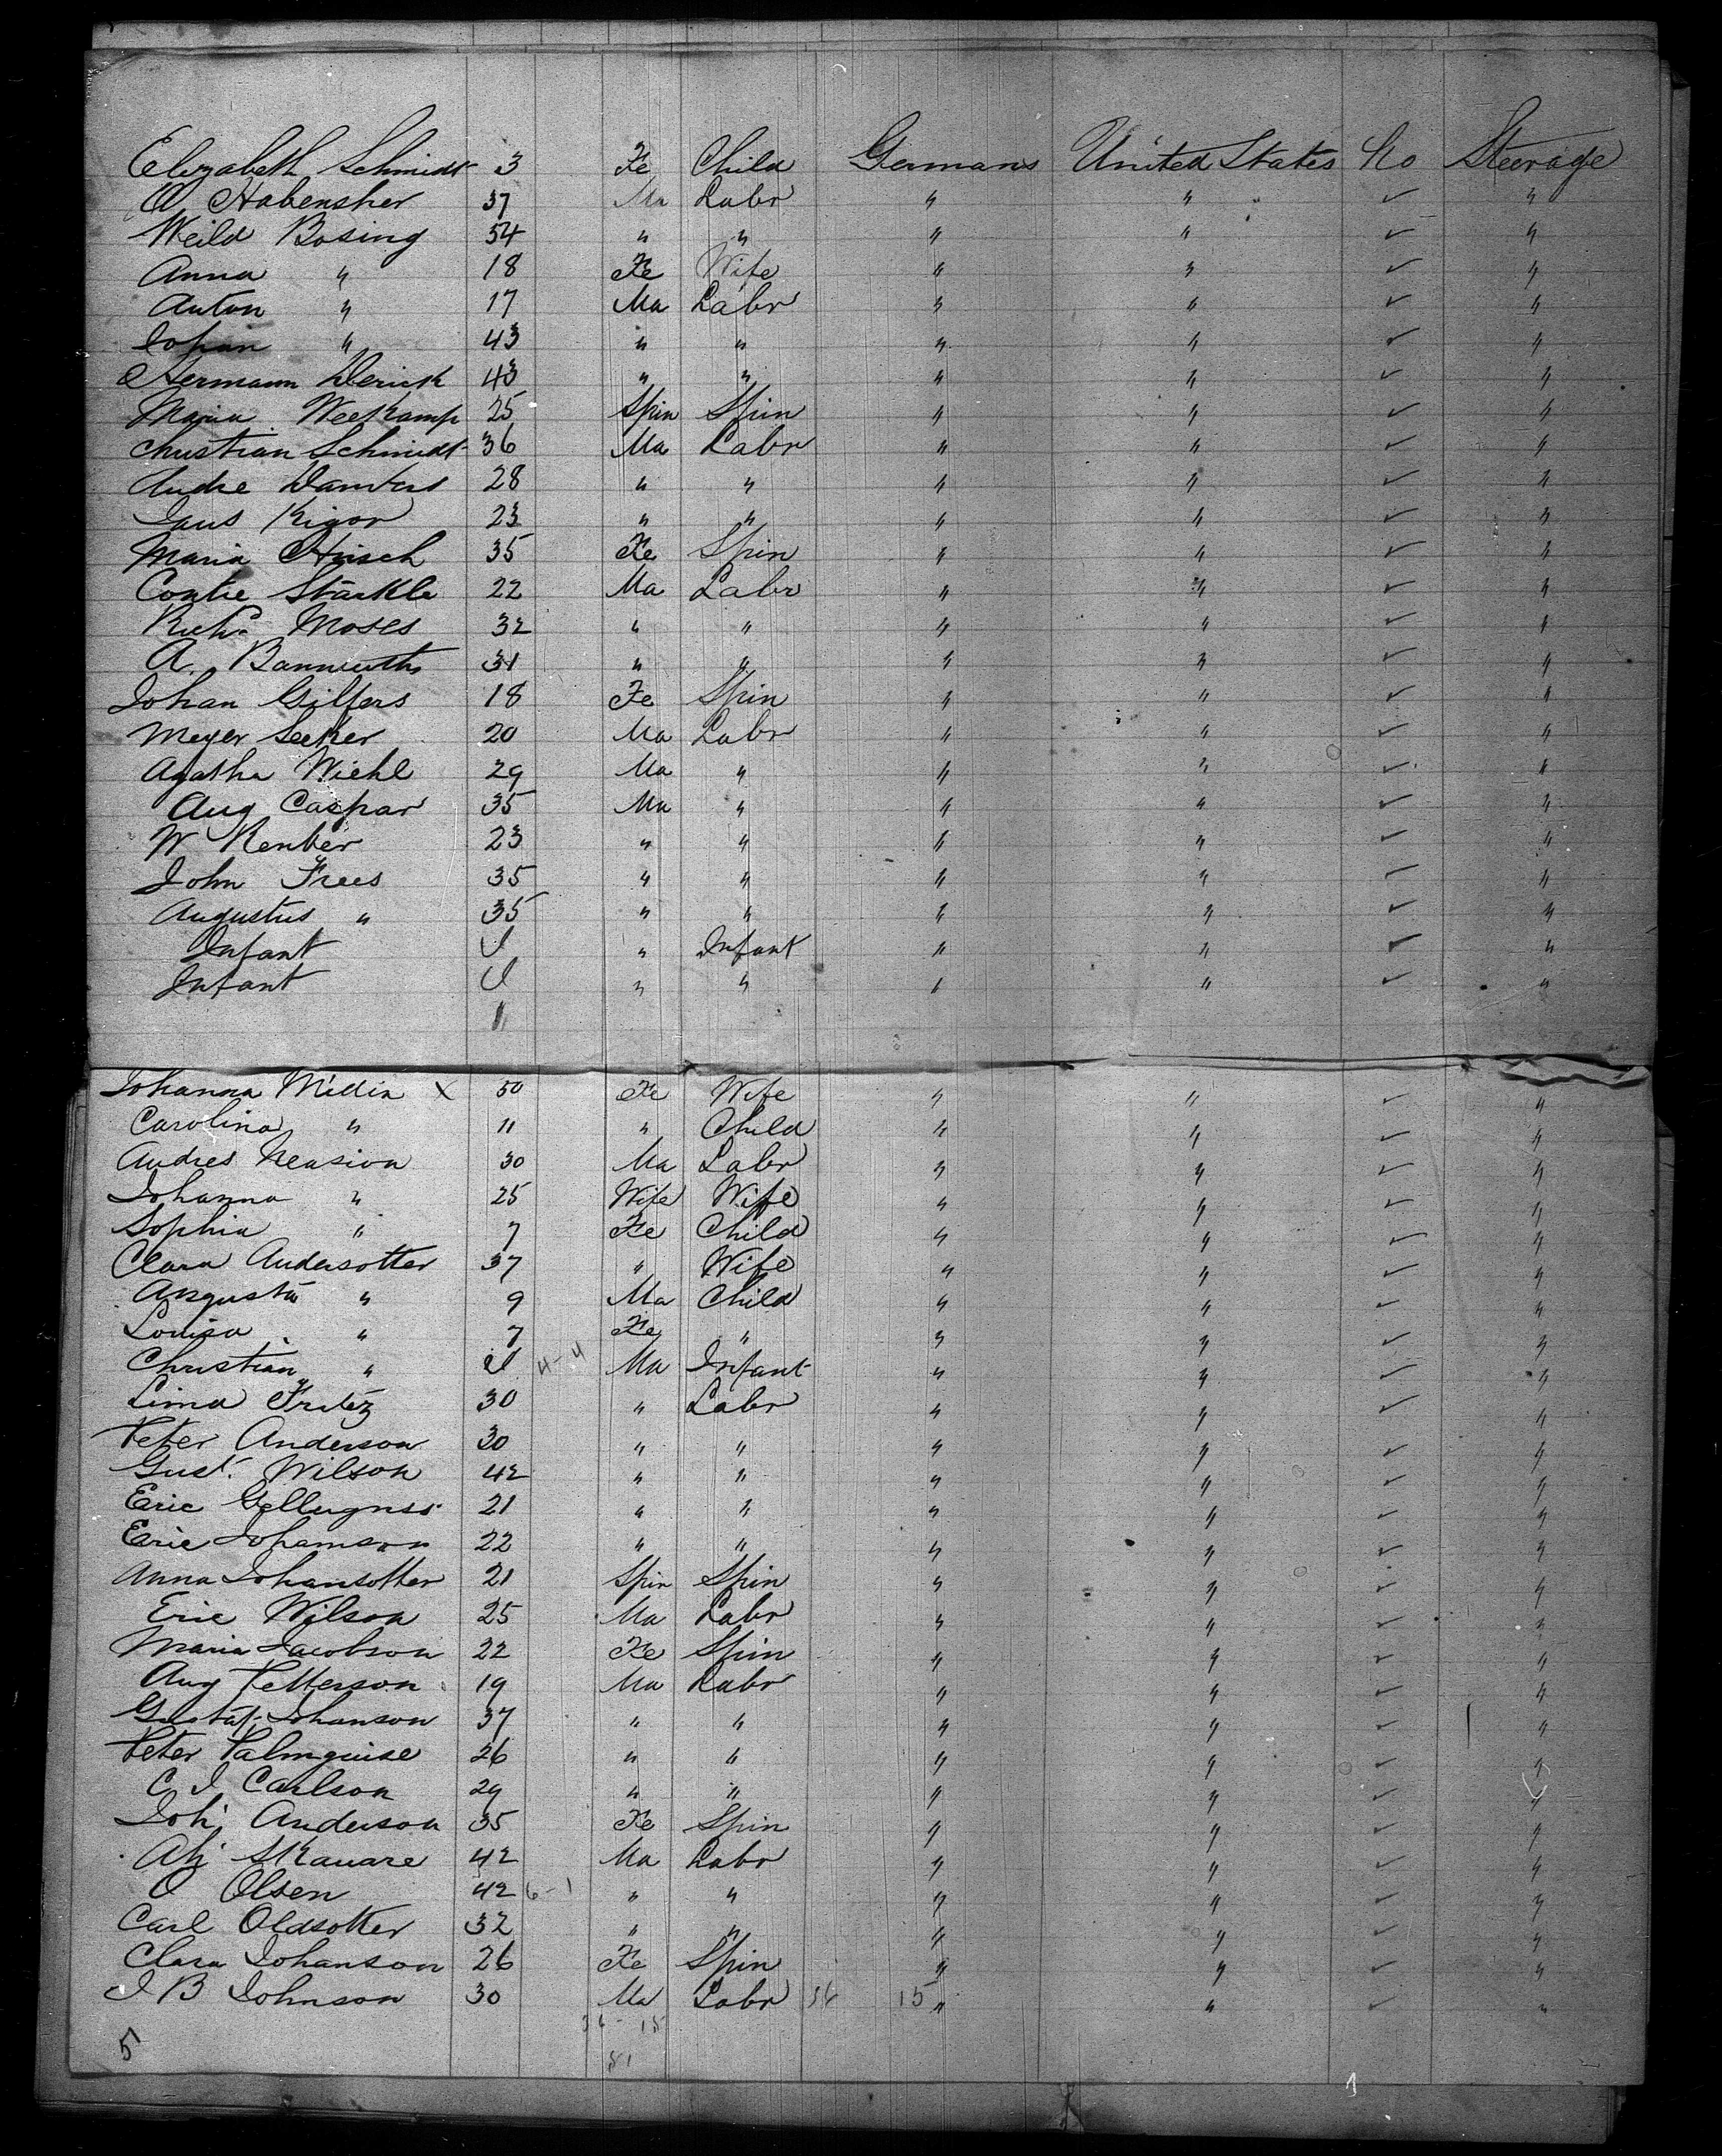 Elizabeth Schmidt 3 Fe Child Germans United States No Steerage
A Habensher 37 Ma Labr " " ✓ "
Weild Bosing 54 " " " " ✓ "
Anna " 18 Fe Wife " " ✓ "
Anton " 17 Ma Labr " " ✓ "
Johan " 43 " " " " ✓ "
Hermann Derick 43 " " " " ✓ "
Maria Weekamp 25 Spin Spin " " ✓ "
Christian Schmidt 36 Ma Labr " " ✓ "
Andre 28 " " " " ✓ "
Rigor 23 " " " " ✓ "
Maria Hirsch 35 Fe Spin " " ✓ "
Contie Starkle 22 Ma Labr " " ✓ "
Richd Moses 32 " " " " ✓ "
A. 31 " " " " ✓ "
Johan Gilfers 18 Fe Spin " " ✓ "
Meyer Seeker 20 Ma Labr " " ✓ "
Agatha Wiehl 29 Ma " " " ✓ "
Aug Caspar 35 Ma " " " ✓ "
W Renker 23 " " " " ✓ "
John Frees 35 " " " " ✓ "
Augustus " 35 " " " " ✓ "
Infant " Infant " " ✓ "
Infant " " " " ✓ "
Johanna Midin x 50 Fe Wife " " ✓ "
Carolina " 11 " Child " " ✓ "
Andres Neasion 30 Ma Labr " " ✓ "
Johanna " 25 Wife Wife " " ✓ "
Sophia " 7 Fe Child " " ✓ "
Clara Andersotter 37 " Wife " " ✓ "
Augusta " 9 Ma Child " " ✓ "
Louisa " 7 Fe " " " ✓ "
Christian " 4-4 Ma Infant " " ✓ "
Lima Fratez 30 " Labr " " ✓ "
Peter Anderson 30 " " " " ✓ "
Gust. Wilson 42 " " " " ✓ "
Eric 21 " " " " ✓ "
Eric Johamson 22 " " " " ✓ "
Anna Johansotter 21 Spin Spin " " ✓ "
Eric Wilson 25 Ma Labr " " ✓ "
Maria Jacobson 22 Fe Spin " " ✓ "
Aug Petterson 19 Ma Labr " " ✓ "
Gustaf Johanson 37 " " " " ✓ "
Peter Palmquise 26 " " " " ✓ "
C J Carlson 29 " " " " ✓ "
Joh. Anderson 35 Fe Spin " " ✓ "
Skauare 42 Ma Labr " " ✓ "
O Olsen 42 6-1 " " " " ✓ "
Carl Oldsotter 32 " " " " ✓ "
Clara Johanson 26 Fe Spin " " ✓ "
J B Johnson 30 Ma Labr 36 15 " " ✓ "
36-15
5 81